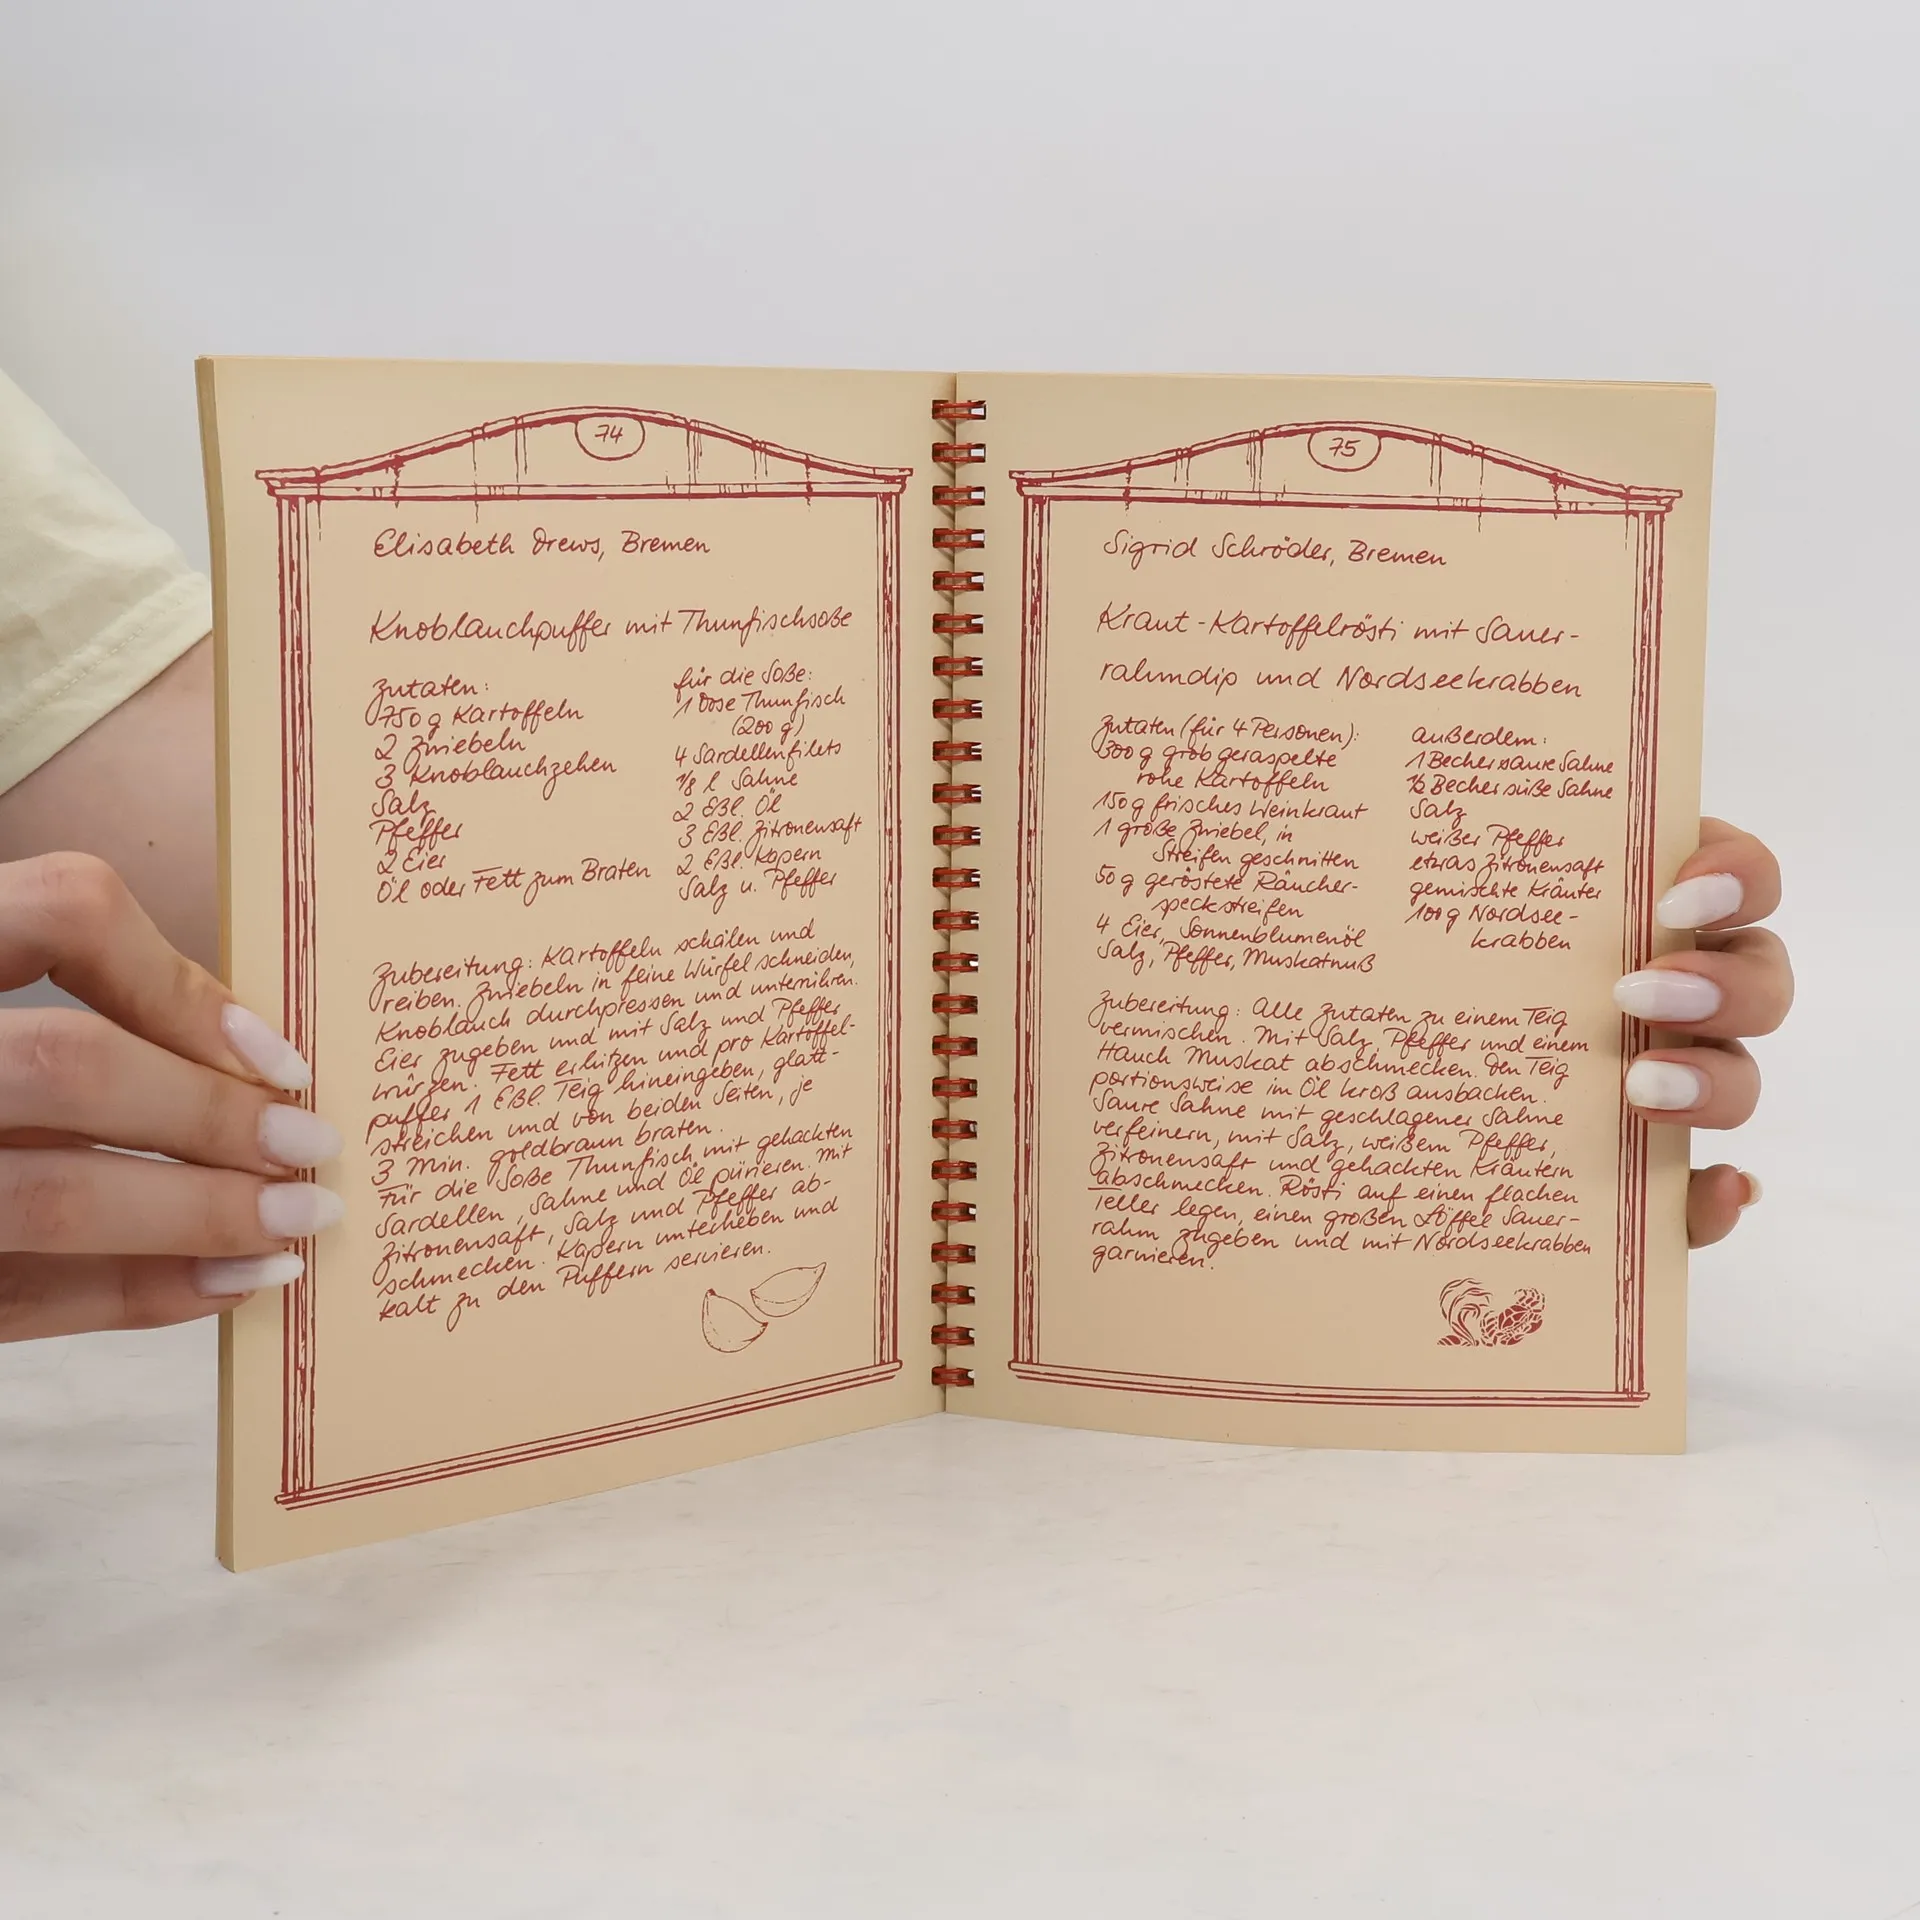 74
Elisabeth Drews, Bremen
Knoblauchpuffer mit Thunfischsoße
Zutaten:
750 g Kartoffeln
2 Zwiebeln
3 Knoblauchzehen
Salz
Pfeffer
2 Eier
Öl oder Fett zum Braten
für die Soße:
1 Dose Thunfisch
(200 g)
4 Sardellenfilets
1/8 l Sahne
2 Eßl. Öl
3 Eßl. Zitronensaft
2 Eßl. Kapern
Salz u. Pfeffer
Zubereitung: Kartoffeln schälen und
reiben. Zwiebeln in feine Würfel schneiden,
Knoblauch durchpressen und unterrühren.
Eier zugeben und mit Salz und Pfeffer
würzen. Fett erhitzen und pro Kartoffel-
puffer 1 Eßl. Teig hineingeben, glatt-
streichen und von beiden Seiten, je
3 Min. goldbraun braten.
Für die Soße Thunfisch mit gehackten
Sardellen, Sahne und Öl pürieren. Mit
Zitronensaft, Salz und Pfeffer ab-
schmecken. Kapern unterheben und
kalt zu den Puffern servieren.
75
Sigrid Schröder, Bremen
Kraut-Kartoffelrösti mit Sauer-
rahmdip und Nordseekrabben
Zutaten (für 4 Personen):
300 g grob geraspelte
rohe Kartoffeln
150 g frisches Weinkraut
1 große Zwiebel, in
Streifen geschnitten
50 g geröstete Räucher-
speckstreifen
4 Eier, Sonnenblumenöl
Salz, Pfeffer, Muskatnuß
außerdem:
1 Becher saure Sahne
1/2 Becher süße Sahne
Salz
weißer Pfeffer
etwas Zitronensaft
gemischte Kräuter
100 g Nordsee-
krabben
Zubereitung: Alle Zutaten zu einem Teig
vermischen. Mit Salz, Pfeffer und einem
Hauch Muskat abschmecken. Den Teig
portionsweise im Öl kroß ausbacken.
Saure Sahne mit geschlagener Sahne
verfeinern, mit Salz, weißem Pfeffer,
Zitronensaft und gehackten Kräutern
abschmecken. Rösti auf einen flachen
Teller legen, einen großen Löffel Sauer-
rahm zugeben und mit Nordseekrabben
garnieren.